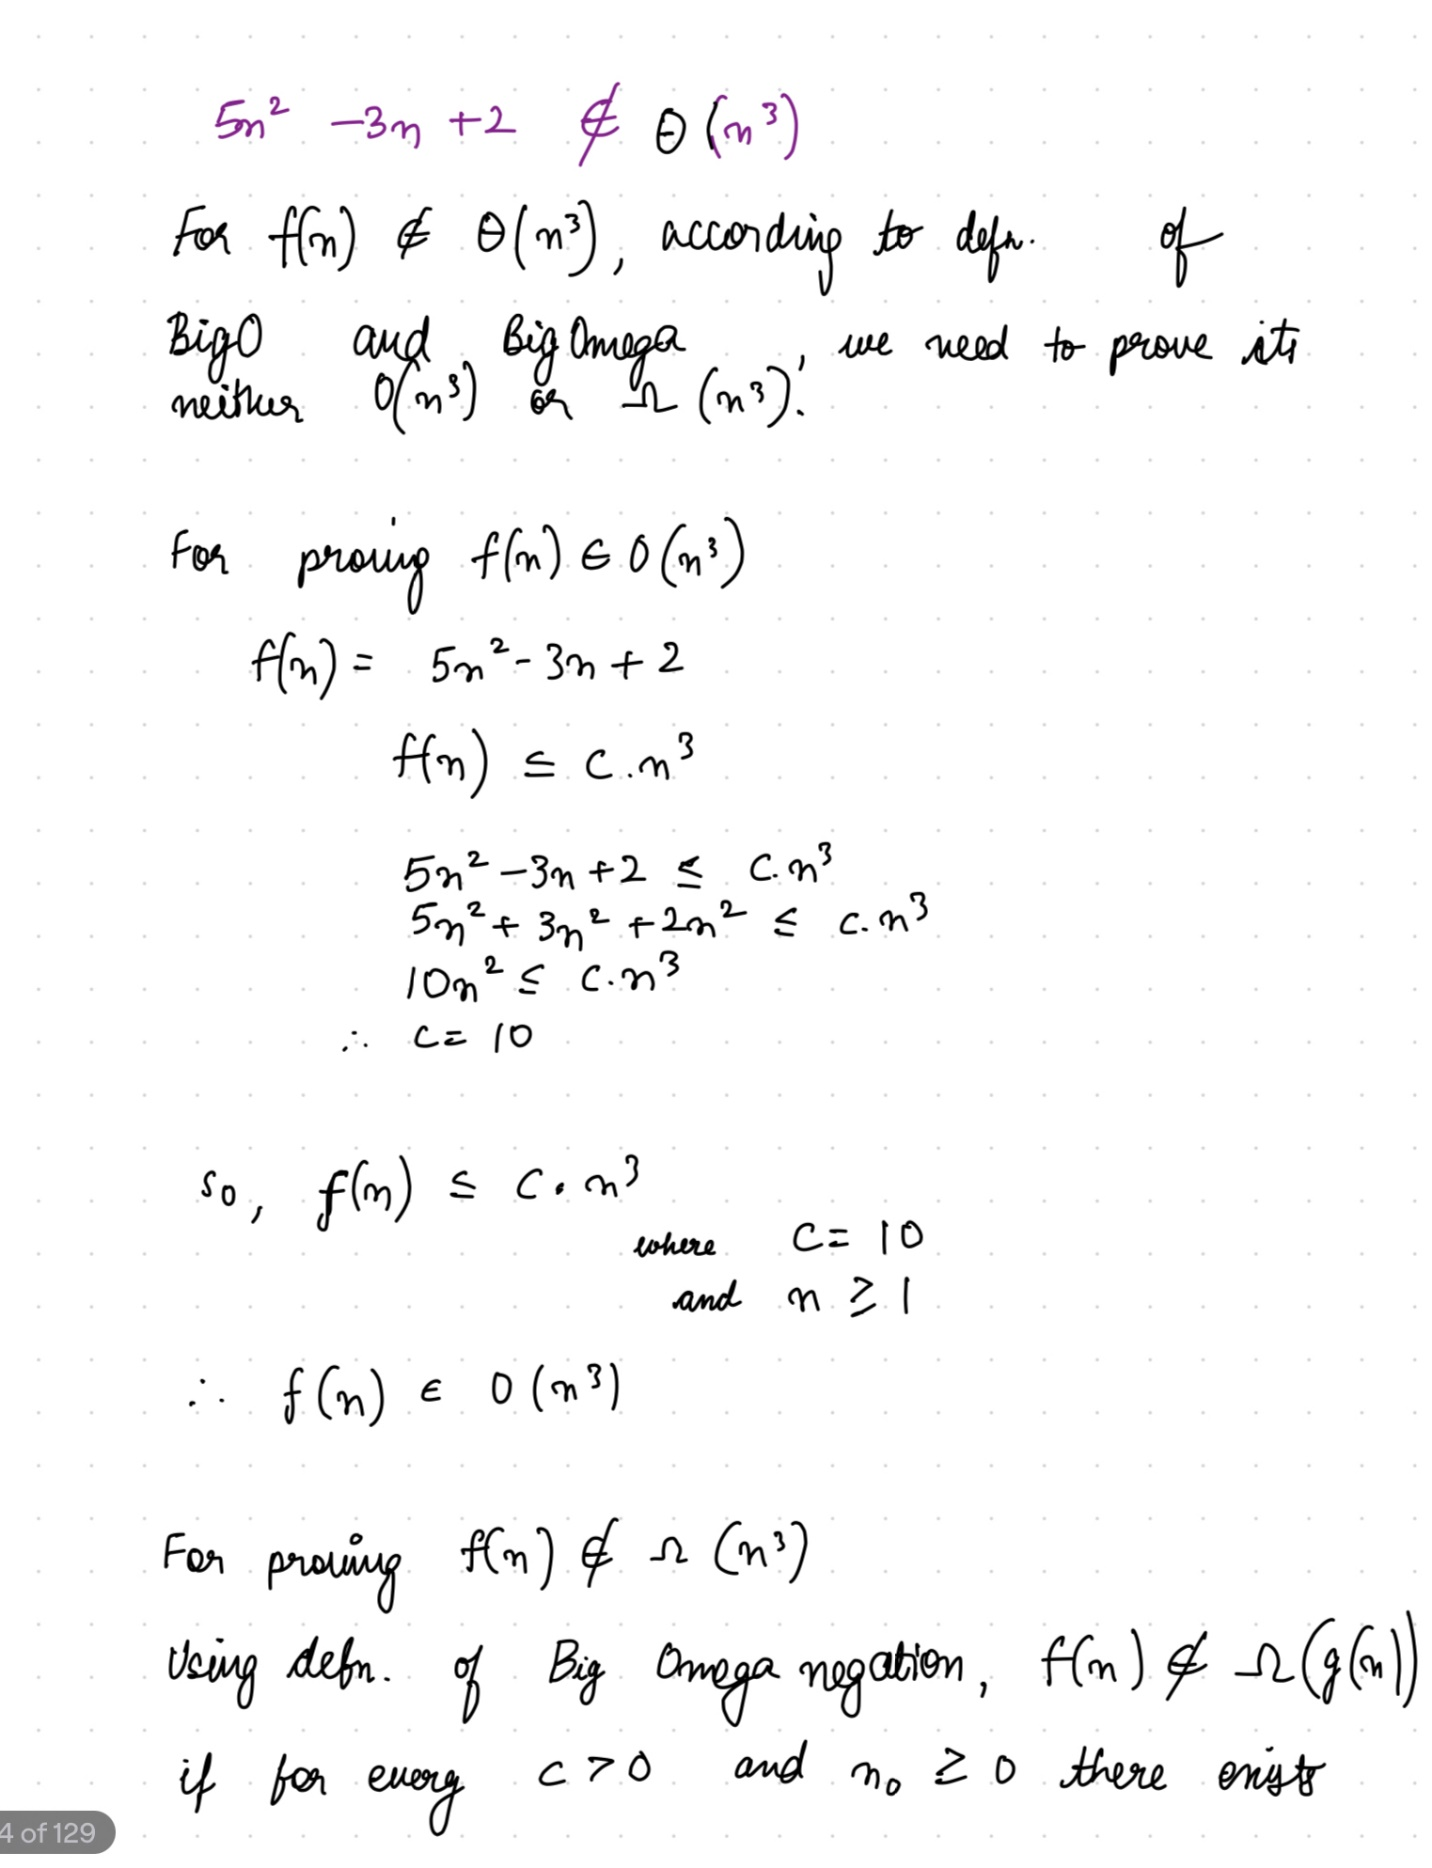 5n² -3n +2 ∉ Θ(n³)
For f(n) ∉ Θ(n³), according to defn. of
BigO and Big Omega, we need to prove its
neither O(n³) or Ω(n³).
For proving f(n) ∈ O(n³)
f(n) = 5n² - 3n + 2
f(n) ≤ c.n³
5n² -3n +2 ≤ c.n³
5n² + 3n² +2n² ≤ c.n³
10n² ≤ c.n³
∴ c= 10
so, f(n) ≤ c.n³
where c= 10
and n ≥ 1
∴ f(n) ∈ O(n³)
For proving f(n) ∉ Ω(n³)
Using defn. of Big Omega negation, f(n) ∉ Ω(g(n))
if for every c>0 and n₀ ≥ 0 there exists
4 of 129